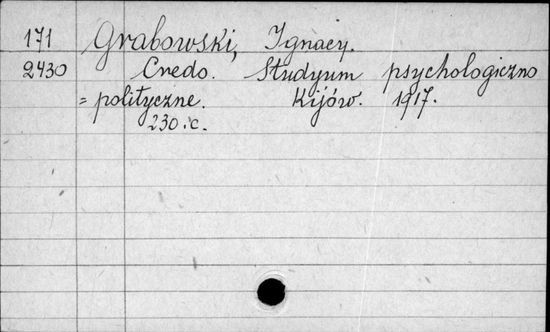 171 Grabowski, Ignacy.
2430 Credo. Studyum psychologiczno
= polityczne. Kijów. 1917.
230.c.